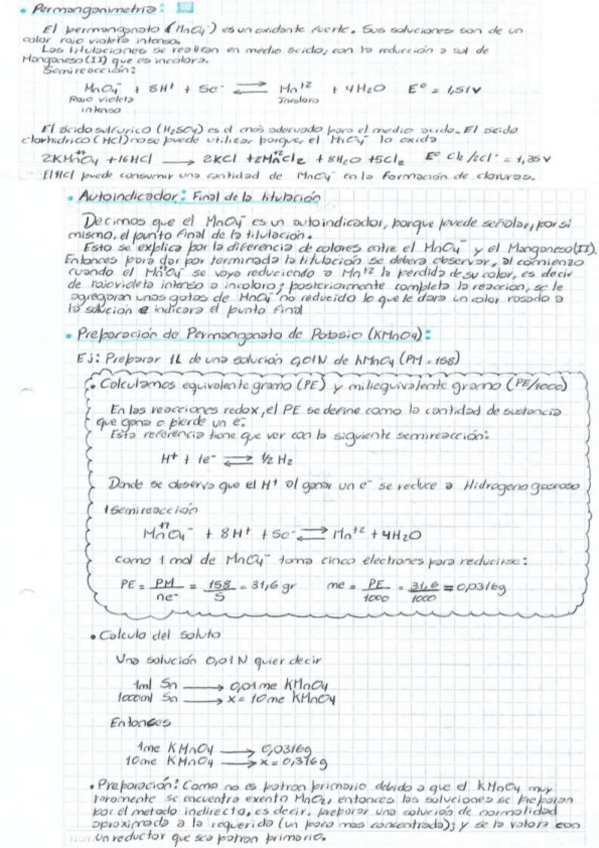 • Permanganimetria:
El permanganato (MnO4⁻) es un oxidante fuerte. Sus soluciones son de un
color rojo violeta intenso.
Las titulaciones se realizan en medio ácido, con la reducción a sal de
Manganeso(II) que es incolora.
Semireacción:
MnO4⁻ + 8H⁺ + 5e⁻ ⇌ Mn⁺² + 4H2O E° = 1,51V
Rojo violeta Incolora
intenso
El ácido sulfurico (H2SO4) es el mas adecuado para el medio acido. El ácido
clorhidrico (HCl) no se puede utilizar porque, el MnO4⁻ lo oxida
2KMnO4 + 16HCl → 2KCl + 2MnCl2 + 8H2O + 5Cl2 E° Cl2/2Cl⁻ = 1,35V
El HCl puede consumir una cantidad de MnO4⁻ en la formación de cloruros.
• Autoindicador: Final de la titulación
Decimos que el MnO4⁻ es un autoindicador, porque puede señalar, por si
mismo, el punto final de la titulación.
Esto se explica por la diferencia de colores entre el MnO4⁻ y el Manganeso(II).
Entonces para dar por terminada la titulación se debera observar, al comienzo
cuando el MnO4⁻ se vaya reduciendo a Mn⁺² la perdida de su color, es decir
de rojo violeta intenso a incoloro; posteriormente completa la reaccion, se le
agregaran unas gotas de MnO4⁻ no reducido lo que le dara un color rosado a
la solución e indicara el punto final
• Preparación de Permanganato de Potasio (KMnO4):
Ej: Preparar 1L de una solución 0,01N de KMnO4 (PM = 158)
• Calculamos equivalente gramo (PE) y miliequivalente gramo (PE/1000)
En las reacciones redox, el PE se define como la cantidad de sustancia
que gana o pierde un e⁻.
Esta referencia tiene que ver con la siguiente semireacción:
H⁺ + 1e⁻ ⇌ ½ H2
Donde se observa que el H⁺ al ganar un e⁻ se reduce a Hidrogeno gaseoso
1 Semireacción
+7
MnO4⁻ + 8H⁺ + 5e⁻ ⇌ Mn⁺² + 4H2O
como 1 mol de MnO4⁻ toma cinco electrones para reducirse:
PE = PM/ne⁻ = 158/5 = 31,6 gr me = PE/1000 = 31,6/1000 = 0,0316g
• Calculo del soluto
Una solución 0,01N quier decir
1ml Sn → 0,01me KMnO4
1000ml Sn → x = 10me KMnO4
Entonces
1me KMnO4 → 0,0316g
10me KMnO4 → x = 0,316g
• Preparación: Como no es patron primario debido a que el KMnO4 muy
raramente se encuentra exento MnO2, entonces las soluciones se preparan
por el metodo indirecto, es decir, preparar una solución de normalidad
aproximada a la requerida (un poco mas concentrada); y se la valora con
un reductor que sea patron primario.